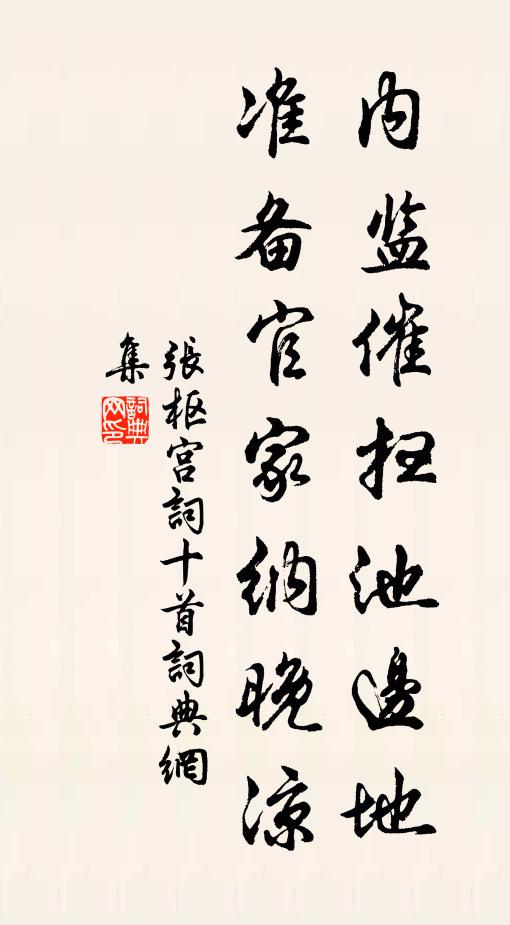 内监催扫池邊地
准备官家納晚涼
張枢宫詞十首詞典網
集
詞典
网印